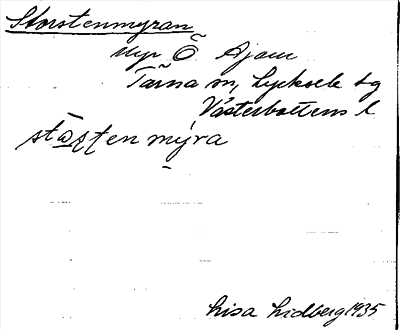 Storstenmyran
Myr Ö Ajaur
Tärna sn, Lycksele lg
Västerbottens l
stɷ̄rsten mýra
Lisa Lidberg 1935